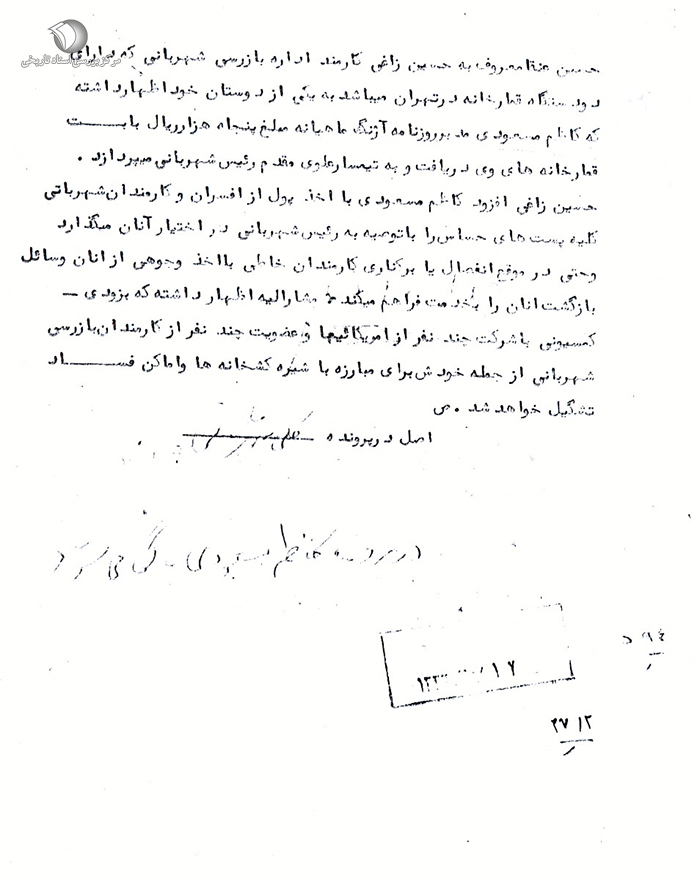 مرکز بررسی اسناد تاریخی
حسین عنقا معروف به حسین زاغی کارمند اداره بازرسی شهربانی که دارای
دودستگاه قمارخانه درتهران میباشد به یکی از دوستان خود اظهارداشته
که کاظم مسعودی مدیر روزنامه آژنگ ماهیانه مبلغ پنجاه هزار ریال بابت
قمارخانه های وی دریافت و به تیمسار علوی مقدم رئیس شهربانی میپردازد .
حسین زاغی افزود کاظم مسعودی با اخذ پول از افسران و کارمندان شهربانی
کلیه پست های حساس را باتوصیه به رئیس شهربانی در اختیار آنان میگذارد
وحتی در موقع انفصال یا برکناری کارمندان خاطی بااخذ وجوهی از انان وسائل
بازگشت انان را بخدمت فراهم میکند مشارالیه اظهار داشته که بزودی –
کمسیونی باشرکت چند نفر از امریکائیها و عضویت چند نفر از کارمندان بازرسی
شهربانی از جمله خودش برای مبارزه با شیره کشخانه ها واماکن فساد
تشگیل خواهد شد . ص
اصل در پرونده
در پرونده کاظم مسعودی
۹۴ د
۱۷
۲۷ ۱۲